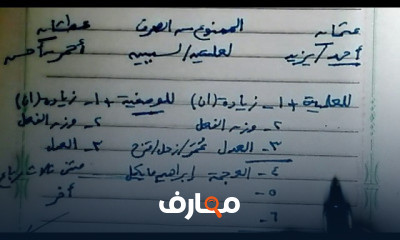 عثمان الممنوع من الصرف عطشان
أحمد/يزيد لعلمية/لسببين أحمر-أحسن
للعلمية + ١- زيادة (ان) للوصفية + ١- زيادة (ان)
٢- وزن الفعل ٢- وزن الفعل
٣- العدل عمر/زحل/قزح ٣- العدل
٤- العجمة إبراهيم مايكل مثنى ثلاث رباع
٥- أخر
٦-
معارف